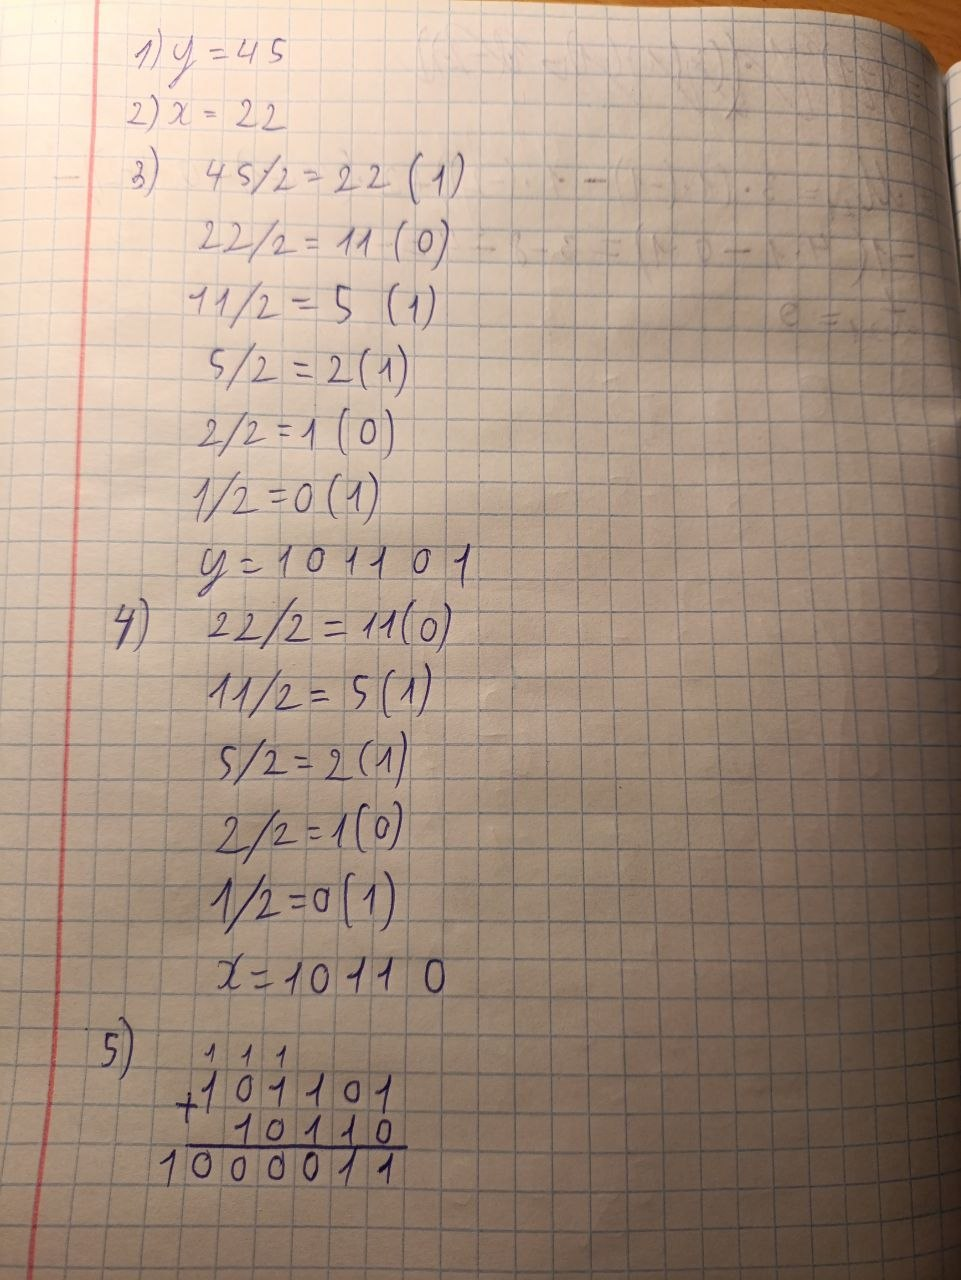 1) y = 45
2) x = 22
3) 45/2 = 22 (1)
22/2 = 11 (0)
11/2 = 5 (1)
5/2 = 2 (1)
2/2 = 1 (0)
1/2 = 0 (1)
y = 1 0 1 1 0 1
4) 22/2 = 11 (0)
11/2 = 5 (1)
5/2 = 2 (1)
2/2 = 1 (0)
1/2 = 0 (1)
x = 1 0 1 1 0
5)
1 1 1
+ 1 0 1 1 0 1
1 0 1 1 0
1 0 0 0 0 1 1